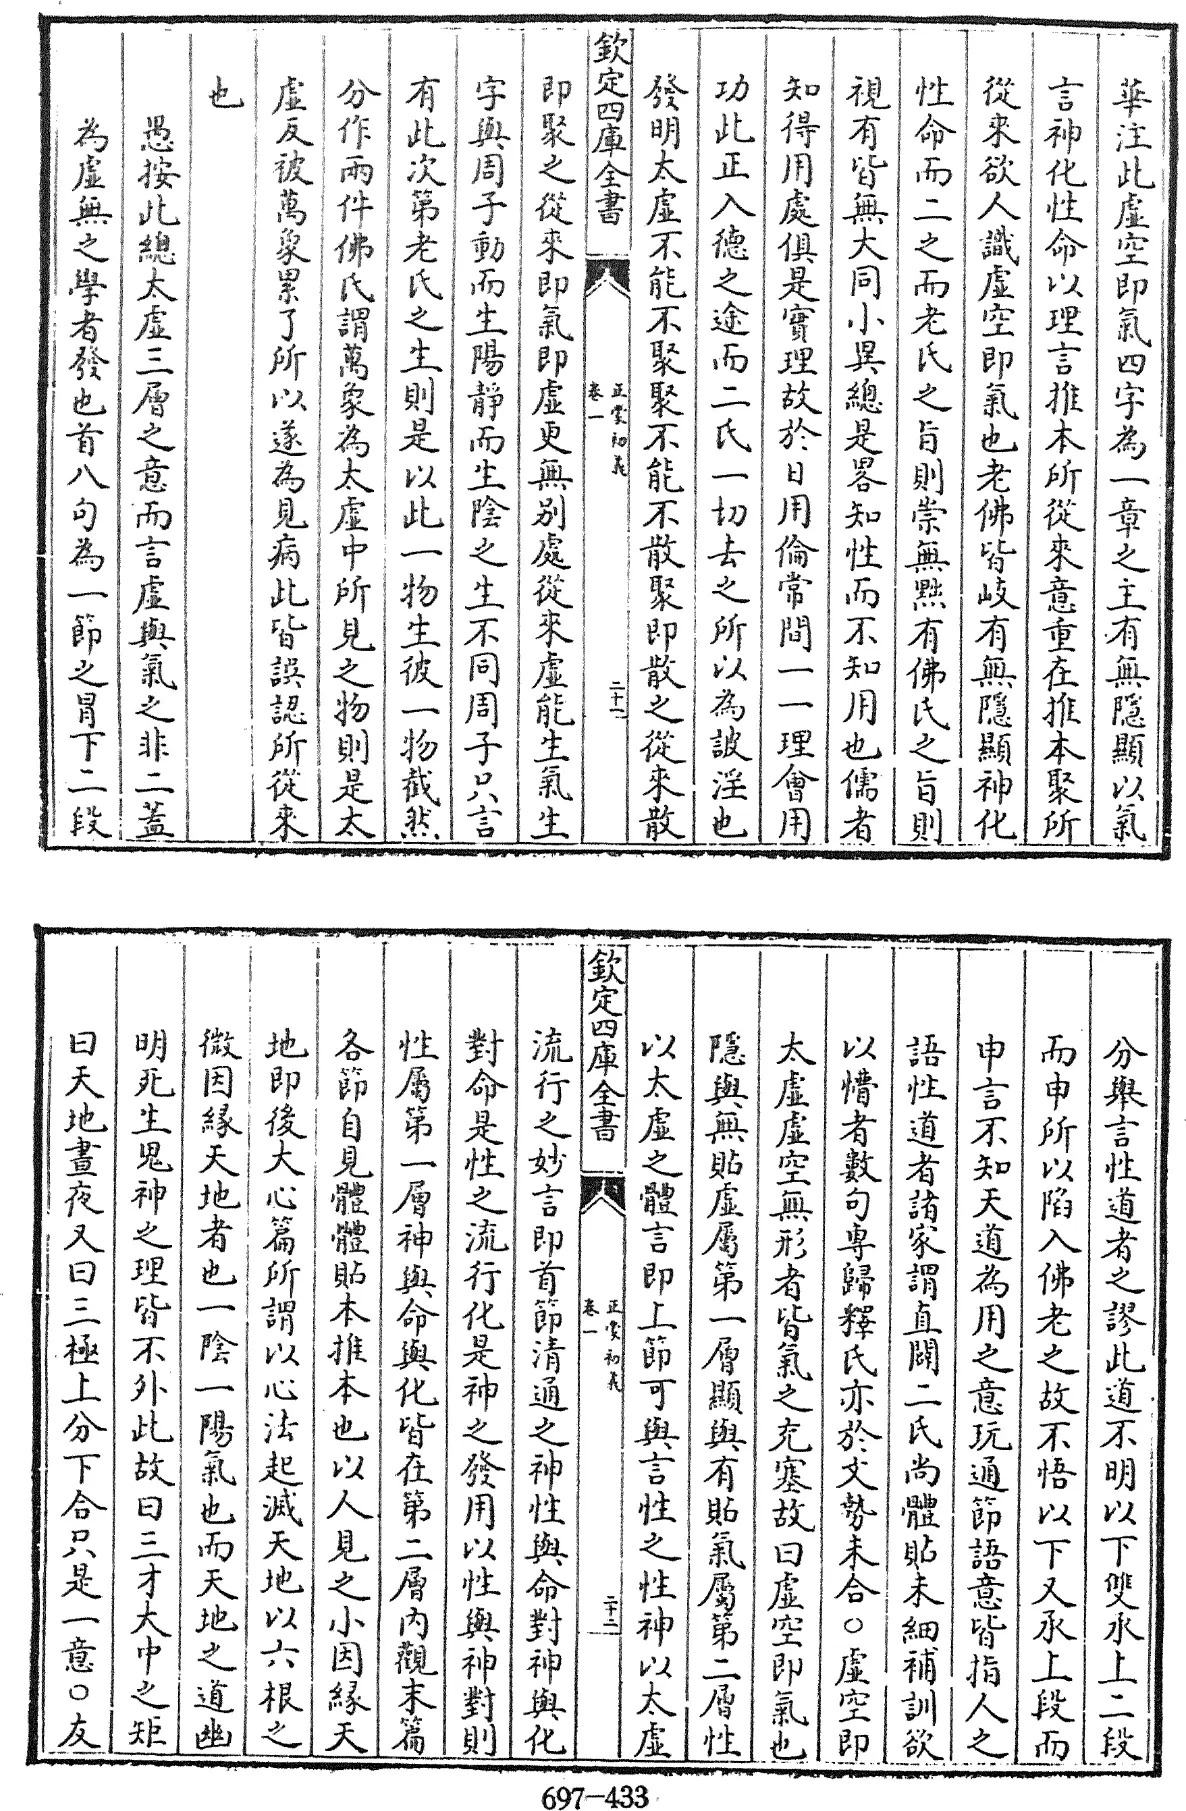 華注此虛空即氣四字為一章之主有無隱顯以氣
言神化性命以理言推本所從來意重在推本聚所
從來欲人識虛空即氣也老佛皆岐有無隱顯神化
性命而二之而老氏之旨則崇無黜有佛氏之旨則
視有皆無大同小異總是畧知性而不知用也儒者
知得用處俱是實理故於日用倫常間一一理會用
功此正入德之途而二氏一切去之所以為詖淫也
發明太虛不能不聚聚不能不散聚即散之從來散
欽定四庫全書
正蒙初義
卷一
二十一
即聚之從來即氣即虛更無別處從來虛能生氣生
字與周子動而生陽靜而生陰之生不同周子只言
有此次第老氏之生則是以此一物生彼一物截然
分作兩件佛氏謂萬象為太虛中所見之物則是太
虛反被萬象累了所以遂為見病此皆誤認所從來
也
愚按此總太虛三層之意而言虛與氣之非二蓋
為虛無之學者發也首八句為一節之冒下二段
分舉言性道者之謬此道不明以下雙承上二段
而申所以陷入佛老之故不悟以下又承上段而
申言不知天道為用之意玩通節語意皆指人之
語性道者諸家謂直闢二氏尚體貼未細補訓欲
以懵者數句專歸釋氏亦於文勢未合○虛空即
太虛虛空無形者皆氣之充塞故曰虛空即氣也
隱與無貼虛屬第一層顯與有貼氣屬第二層性
以太虛之體言即上節可與言性之性神以太虛
欽定四庫全書
正蒙初義
卷一
二十二
流行之妙言即首節清通之神性與命對神與化
對命是性之流行化是神之發用以性與神對則
性屬第一層神與命與化皆在第二層內觀末篇
各節自見體體貼本推本也以人見之小因緣天
地即後大心篇所謂以心法起滅天地以六根之
微因緣天地者也一陰一陽氣也而天地之道幽
明死生鬼神之理皆不外此故曰三才大中之矩
曰天地晝夜又曰三極上分下合只是一意○友
697-433